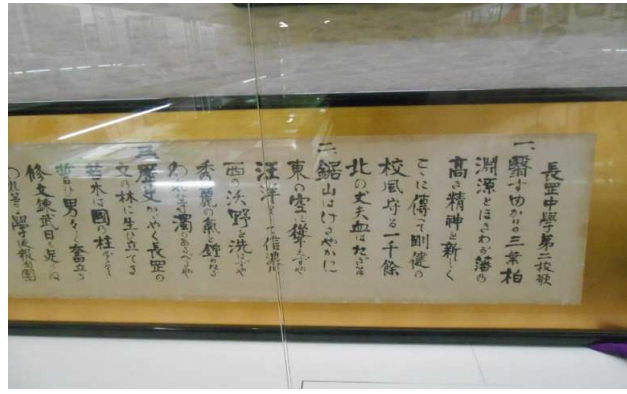 長岡中學第二校歌
一、霸者ゆかりの三葉柏
淵源とほきわが藩の
高き精神を新しく
こゝに傳へて剛健の
校風守る一千餘
北の丈夫血はたぎる
二、鋸山はけざやかに
東の空に聳えずや
汪洋として信濃川
西の沃野を洗はずや
秀麗の氣を鍾めたる
われに濁のあるべきや
三、歴史かゞやく長岡の
文の林に生ひ立てる
若木は國の柱ぞと
皆は男々しく奮立ち
修文錬武日も足らぬ
われ等學徒報國團